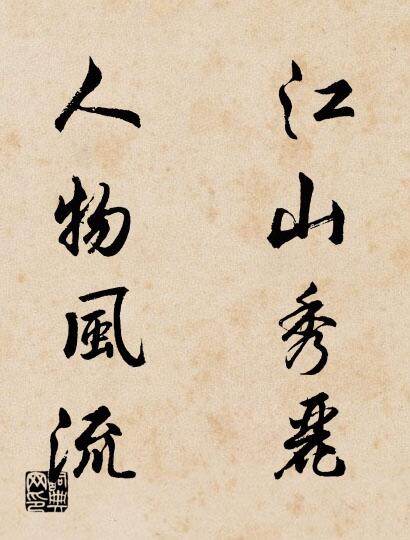 江山秀麗
人物風流